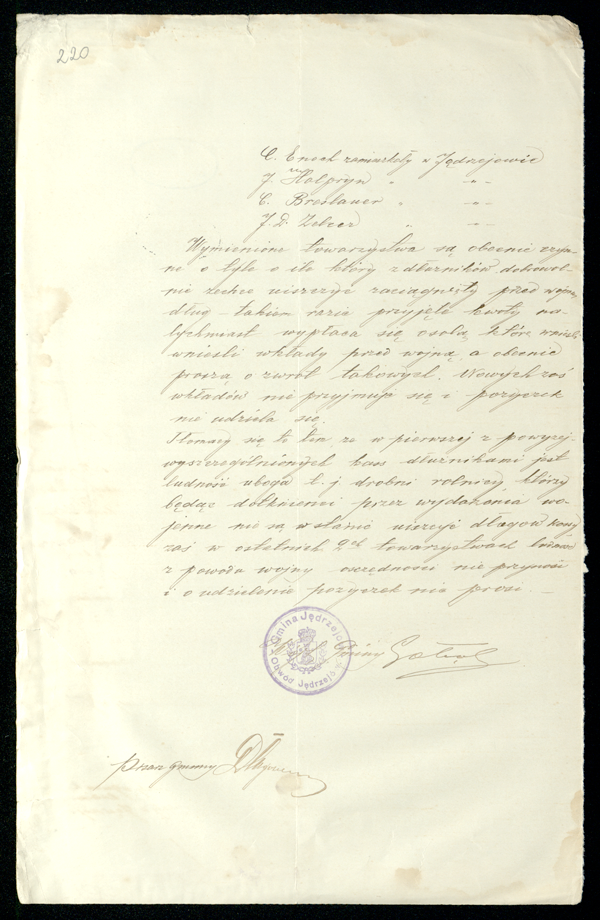 220
C. Enoch zamieszkały w Jędrzejowie
J. Halpryn " - " -
C. Breslauer " - " -
J. D. Zelcer " - " -
Wymienione towarzystwa są obecnie czyn
ne o tyle o ile który z dłużników dobrowol-
nie zechce uiszczyć zaciągnięty przed wojną
dług - takiem razie przyjęte kwoty na-
tychmiast wypłaca się osobą które
wniesli wkłady przed wojną a obecnie
proszą o zwrot takowych. Nowych zaś
wkładów nie przyjmuje się i pożyczek
nie udziela się.
Tłomaczy się to tem, ze w pierwszej z powyzej
wyszczególnionych kass dłuznikami jest
ludność uboga t. j. drobni rolnicy, którzy
będąc dotknięci przez wydarzenia wo-
jenne nie są w stanie uiszczyć długów
zaś w ostatnich 2ch towarzystwach ludność
z powodu wojny oszczędności nie przynosi
i o udzielenie pożyczek nie prosi. -
Gmina Jędrzejów
Obwód Jędrzejów
Gminy
Pisarz gminny